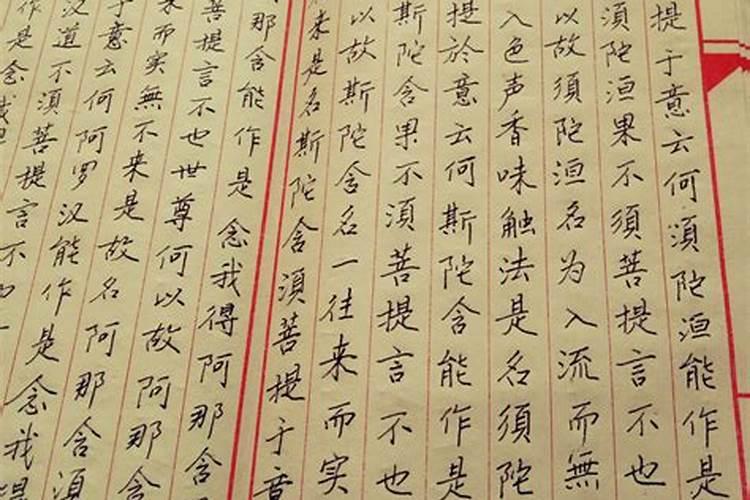 提于意云何須陀洹能作是
須陀洹果不須菩提言不也
以故須陀洹名为入流而無
入色声香味触法是名須陀
提於意云何斯陀含能作是
斯陀含果不須菩提言不也
以故斯陀含名一往来而实
来是名斯陀含須菩提于意
那含能作是念我得阿那含
菩提言不也世尊何以故阿那含
来而实無不来是故名阿那含須
于意云何阿罗汉能作是念我得
汉道不須菩提言不也
作是念我